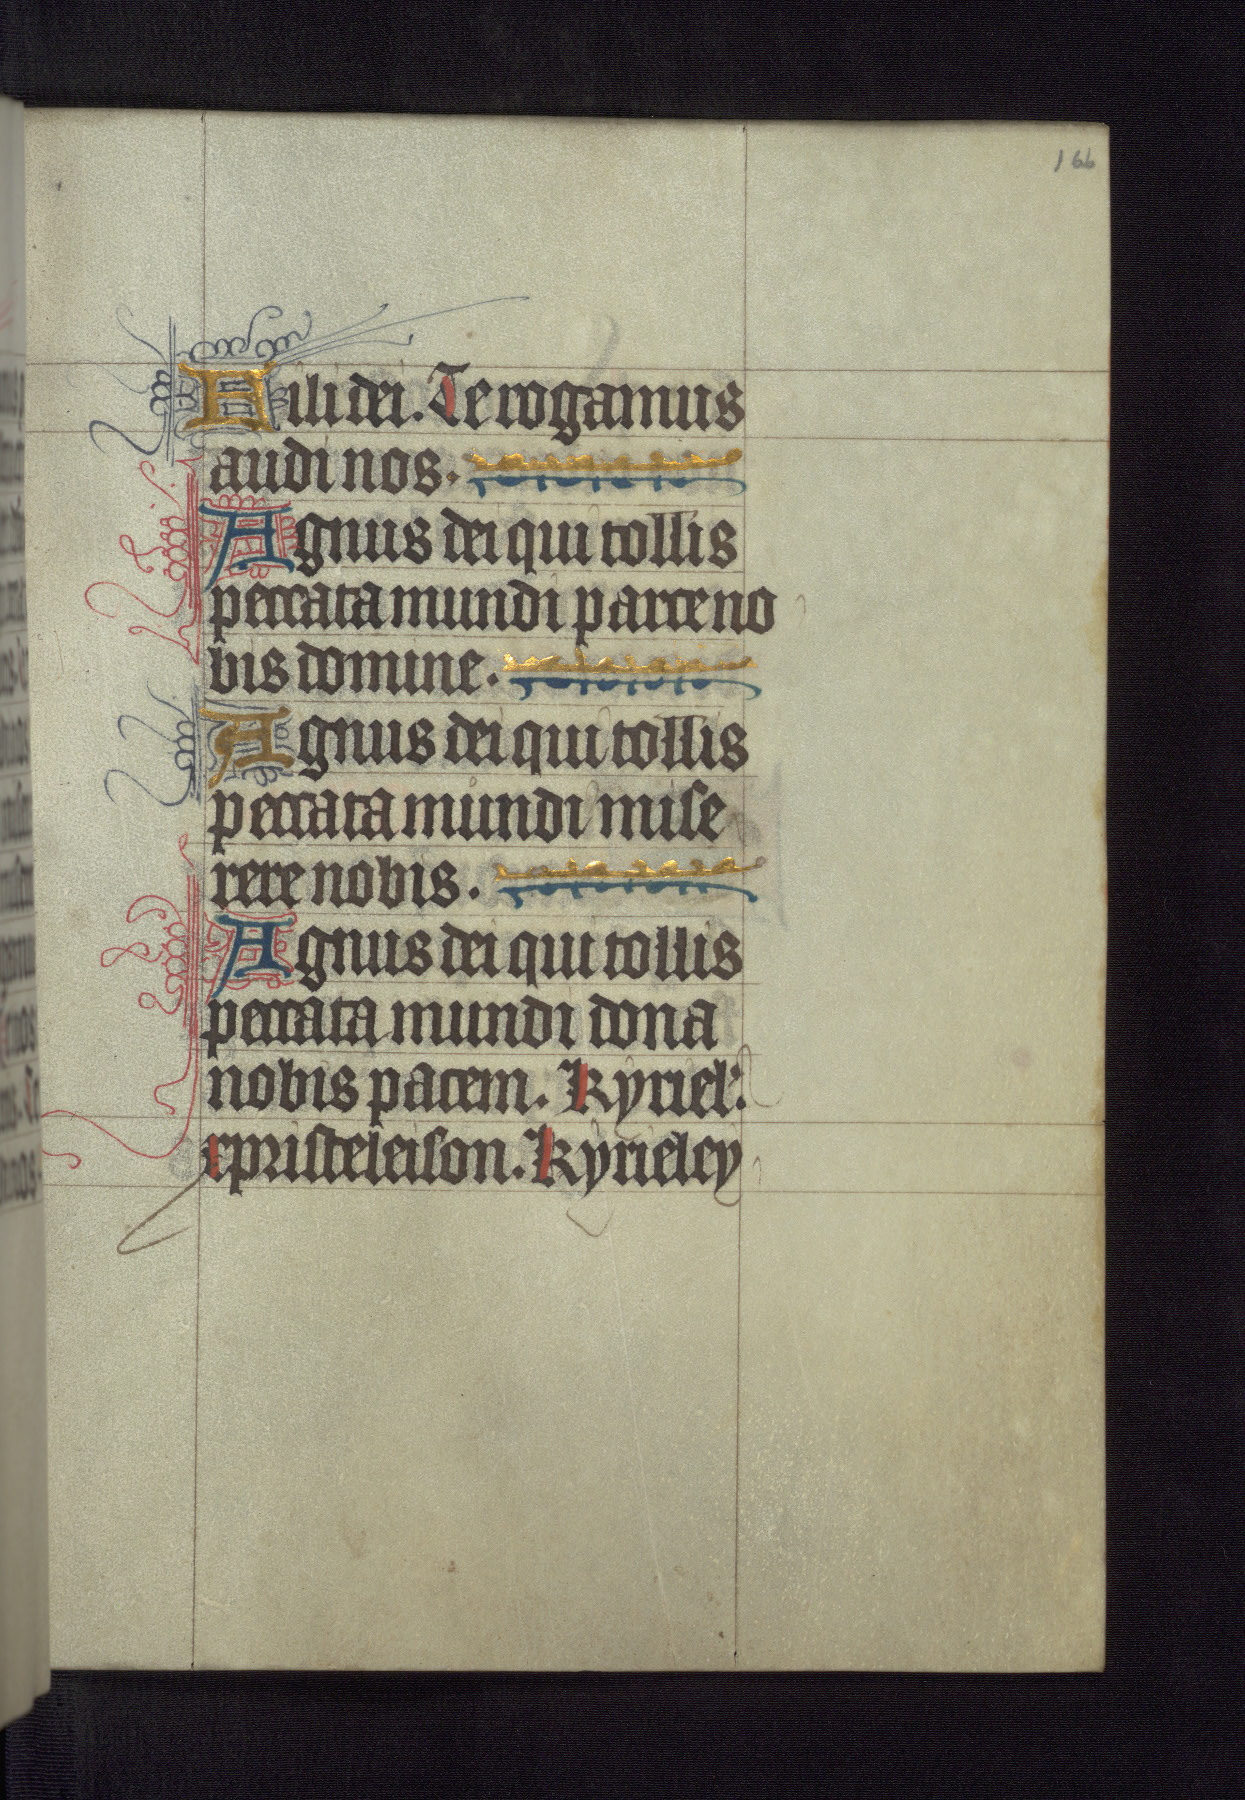 166
Fili dei. Te rogamus
audi nos.
Agnus dei qui tollis
peccata mundi parce no
bis domine.
Agnus dei qui tollis
peccata mundi mise
rere nobis.
Agnus dei qui tollis
peccata mundi dona
nobis pacem. Kyriel'.
xpristeleison. Kyrieley